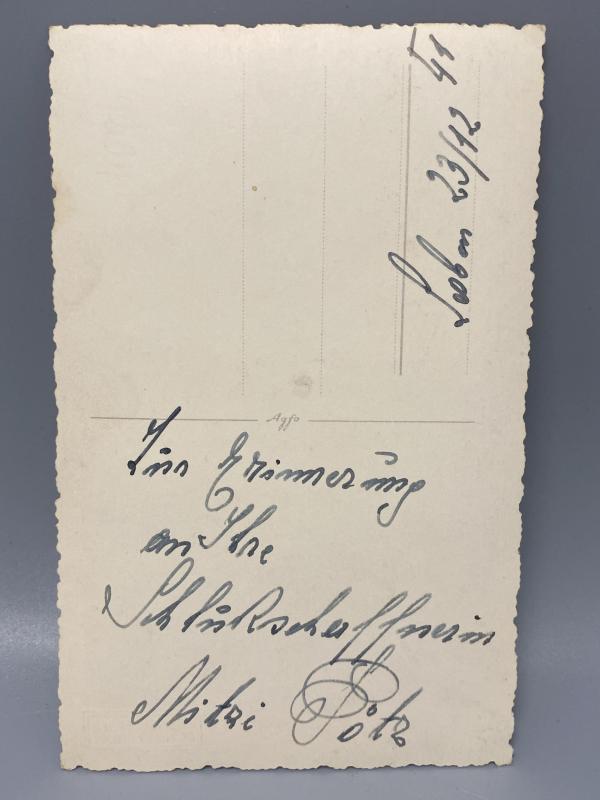 Leoben 23/12 41
Agfa
Zur Erinnerung
an Ihre
Schlußschaffnerin
Mitzi Pötz